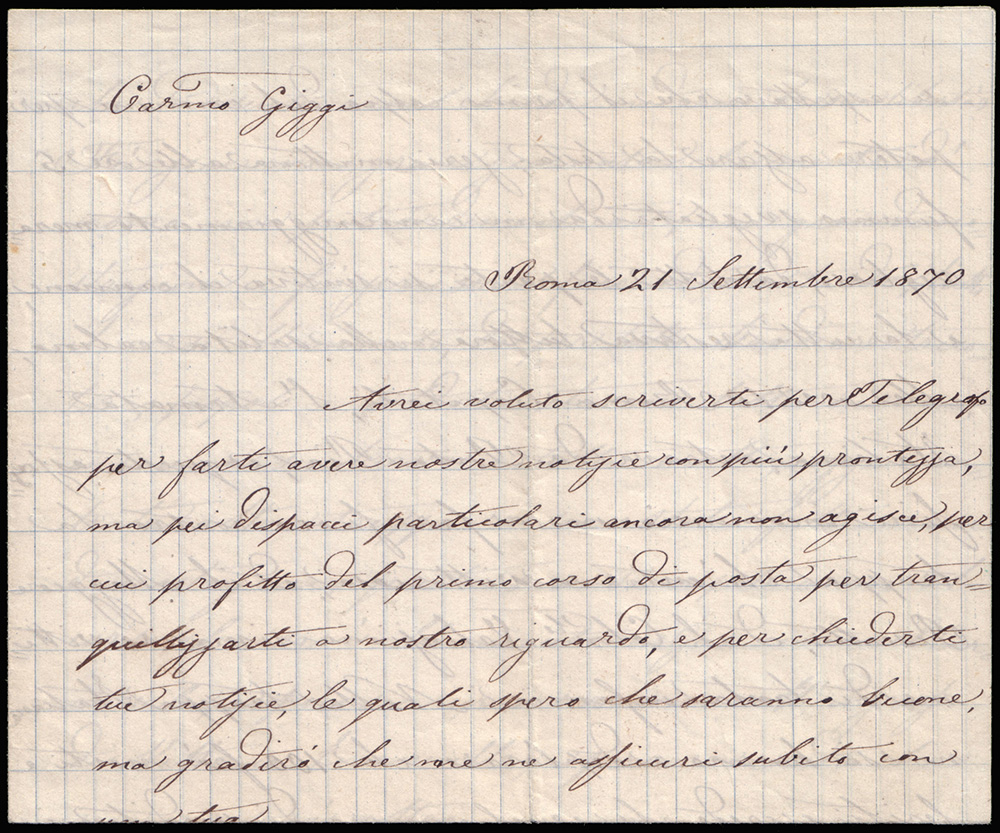 Carmo Giggi
Roma 21 Settembre 1870
Avrei voluto scriverti per Telegrafo
per farti avere nostre notizie con più prontezza,
ma pei dispacci particolari ancora non agisce, per
cui profitto del primo corso di posta per tran=
quillizzarti a nostro riguardo, e per chiederti
tue notizie, le quali spero che saranno buone,
ma gradirò che me ne assicuri subito con
una tua